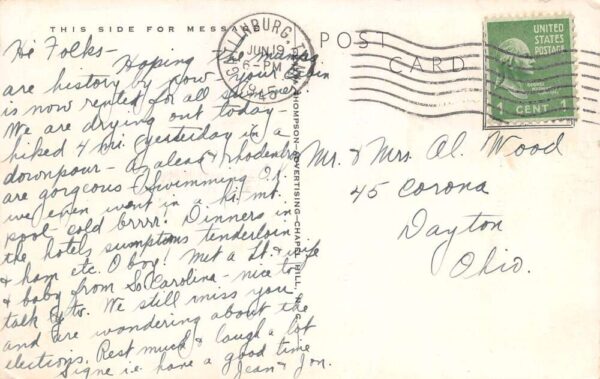 THIS SIDE FOR MESSAGE
Hi Folks -
Hoping the mumps
are history by now - your cabin
is now rented for all summer
We are drying out today -
hiked 4 hrs. yesterday in a
downpour - azaleas & Rhododen
are gorgeous. Swimming O.K.
we even went in a mt.
pool - cold brrr! Dinners in
the hotel sumptous tenderloin
& ham etc. O boy! Met a Lt. & wife
& baby from So Carolina - nice to
talk to. We still miss you
and are wondering about the
elections. Rest much & laugh a lot
Signe i.e. have a good time
Jean & Jon.
THOMPSON-ADVERTISING-CHAPEL HILL, N. C.
GATLINBURG, TENN.
JUN 19
6-PM
1945
POST CARD
UNITED
STATES
POSTAGE
1 CENT 1
Mr. & Mrs. Al. Wood
45 Corona
Dayton
Ohio.